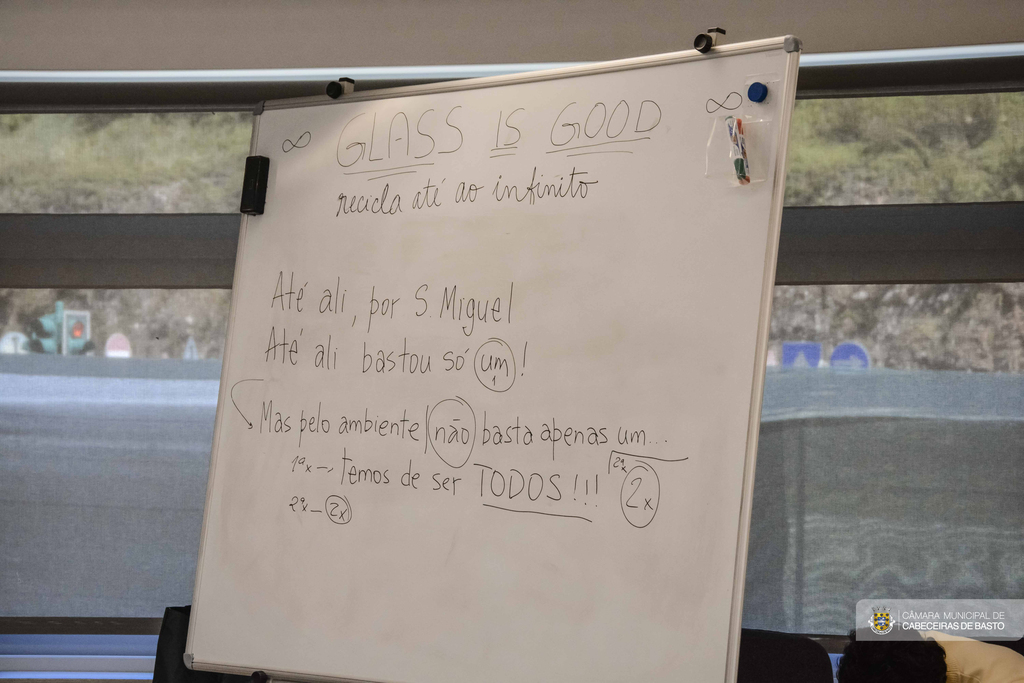 ∞ GLASS IS GOOD ∞
recicla até ao infinito
Até ali, por S. Miguel
Até ali bastou só um !
1
Mas pelo ambiente não basta apenas um...
1ªx - temos de ser TODOS!!! 2ªx 2x
2ªx - 2x
CÂMARA MUNICIPAL DE
CABECEIRAS DE BASTO